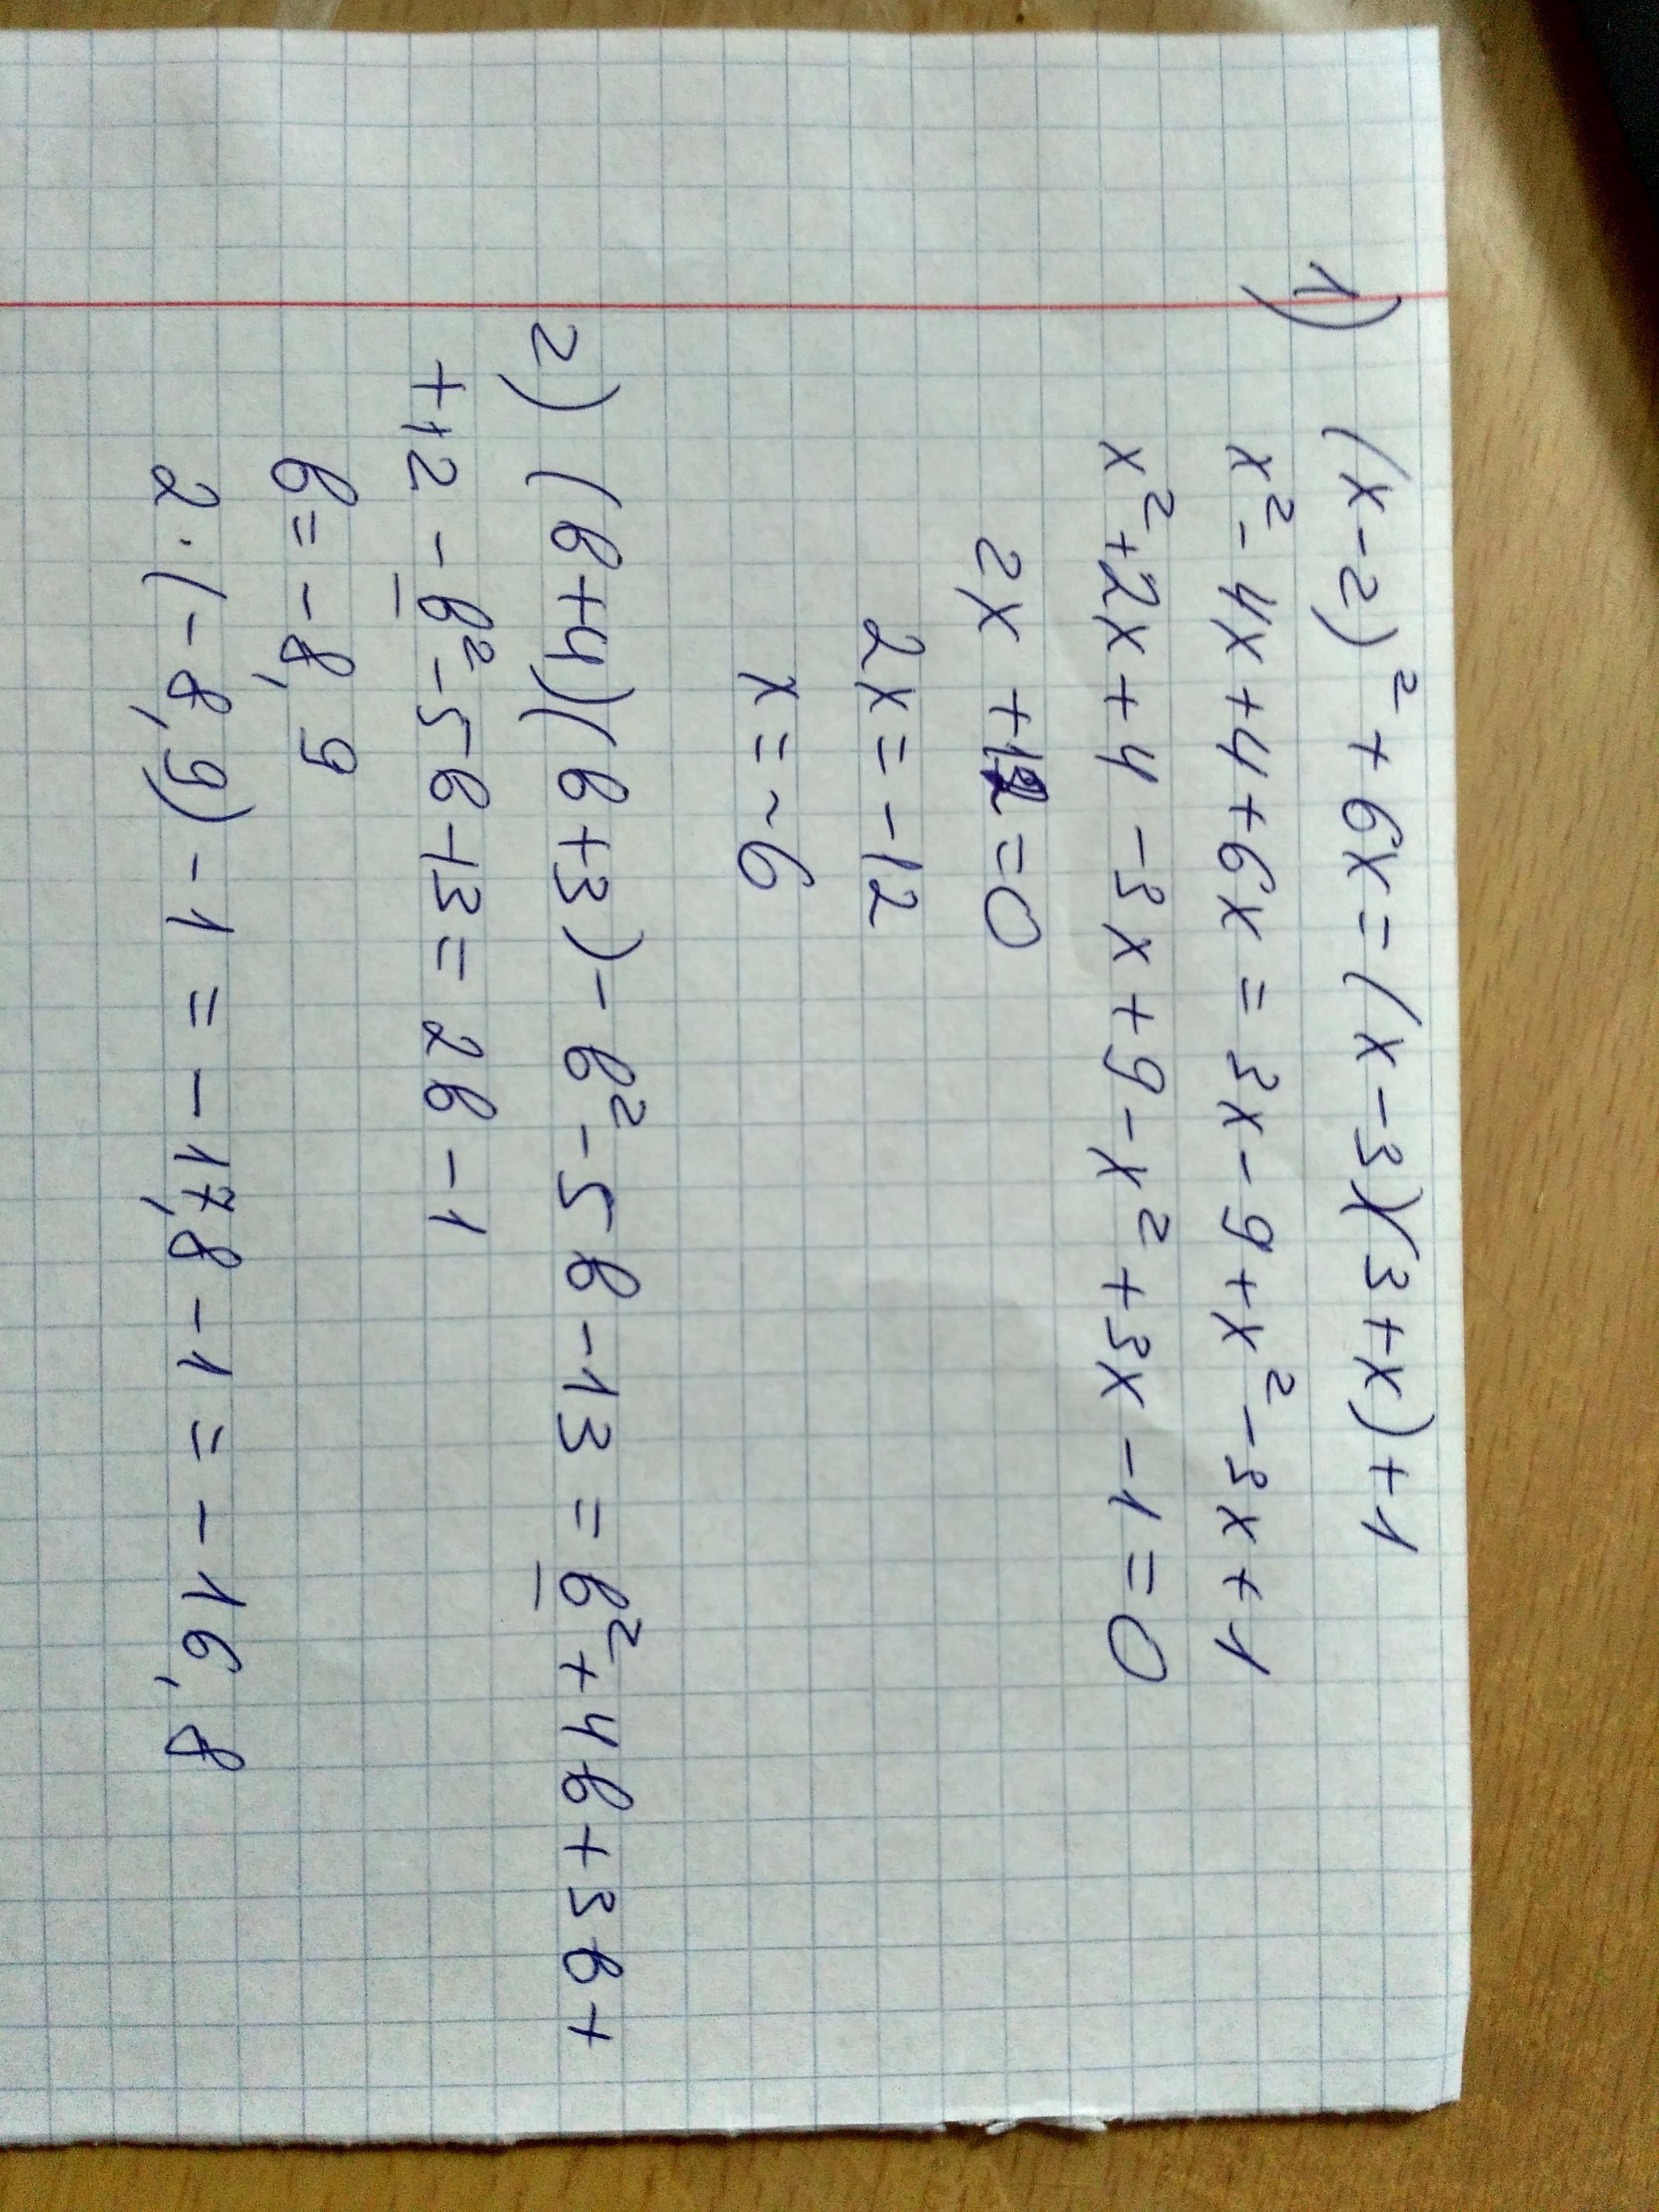 1) (x-2)² + 6x = (x-3)(3+x)+1
x² - 4x + 4 + 6x = 3x - 9 + x² - 3x + 1
x² + 2x + 4 - 3x + 9 - x² + 3x - 1 = 0
2x + 12 = 0
2x = -12
x = -6
2) (в+4)(в+3) - в² - 5в - 13 = в² + 4в + 3в +
+12 - в² - 5в - 13 = 2в - 1
в = -8,9
2·(-8,9) - 1 = -17,8 - 1 = -16,8